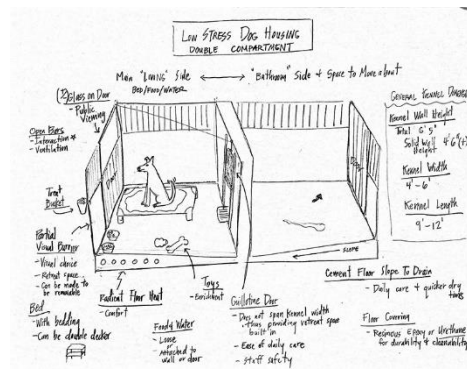 LOW STRESS DOG HOUSING
DOUBLE COMPARTMENT
Main "Living" Side
BED/FOOD/WATER
"Bathroom" Side & Space to Move about
(½) Glass on Door
- Public
Viewing
Open Bars
- Interaction
- Ventilation
Treat
Bucket
Partial
Visual Barrier
- Visual choice
- Retreat space
- Can be made to
be removable
Bed
- With bedding
- Can be double decker
Radient Floor Heat
- Comfort
Food & Water
- Loose
- attached to
wall or door
Toys
- Enrichment
Guillotine Door
- Does not span kennel width
thus providing retreat space
built in
- Ease of daily care
- Staff safety
SLOPE
Cement Floor Slope To Drain
- Daily care & quicker dry
Floor Covering
- Resinous Epoxy or Urethane
for durability & cleanability
GENERAL KENNEL
Kennel Wall Height
Total 6' 5"
Solid Wall
Height 4' 6"
Kennel Width
4' - 6'
Kennel Length
9' - 12'